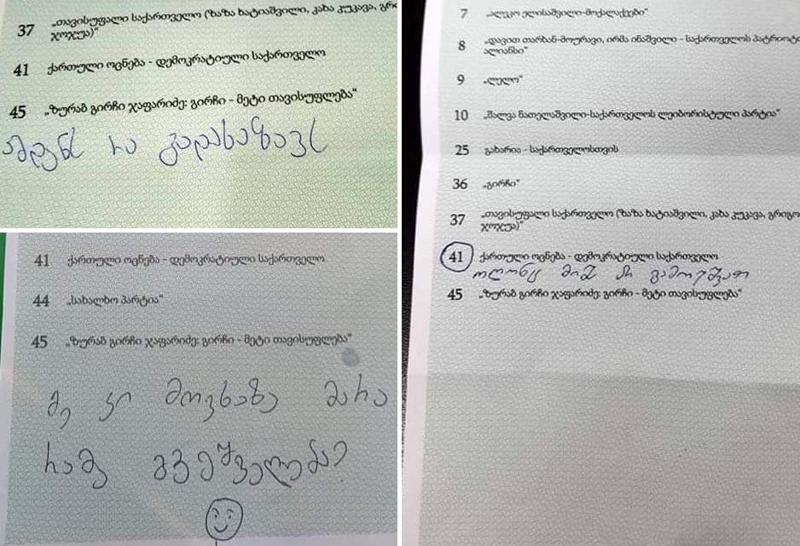 37 „თავისუფალი საქართველო (ზაზა ხატიაშვილი, კახა კუკავა, გრი
ჯოჯუა)“
41 ქართული ოცნება - დემოკრატიული საქართველო
45 „ზურაბ გირჩი ჯაფარიძე: გირჩი - მეტი თავისუფლება“
ამდენს რა გადახაზავს
41 ქართული ოცნება - დემოკრატიული საქართველო
44 „სახალხო პარტია“
45 „ზურაბ გირჩი ჯაფარიძე: გირჩი - მეტი თავისუფლება“
მე კი მოვხაზე მარა
რამე გვეშველება?
7 „ალეკო ელისაშვილი-მოქალაქეები“
8 „დავით თარხან-მოურავი, ირმა ინაშვილი - საქართველოს პატრიოტთ
ალიანსი“
9 „ლელო“
10 „შალვა ნათელაშვილი-საქართველოს ლეიბორისტული პარტია“
25 გახარია - საქართველოსთვის
36 „გირჩი“
37 „თავისუფალი საქართველო (ზაზა ხატიაშვილი, კახა კუკავა, გრიგო
ჯოჯუა)“
41 ქართული ოცნება - დემოკრატიული საქართველო
ოღონც მიშ არ გამოუშვათ
45 „ზურაბ გირჩი ჯაფარიძე: გირჩი - მეტი თავისუფლება“